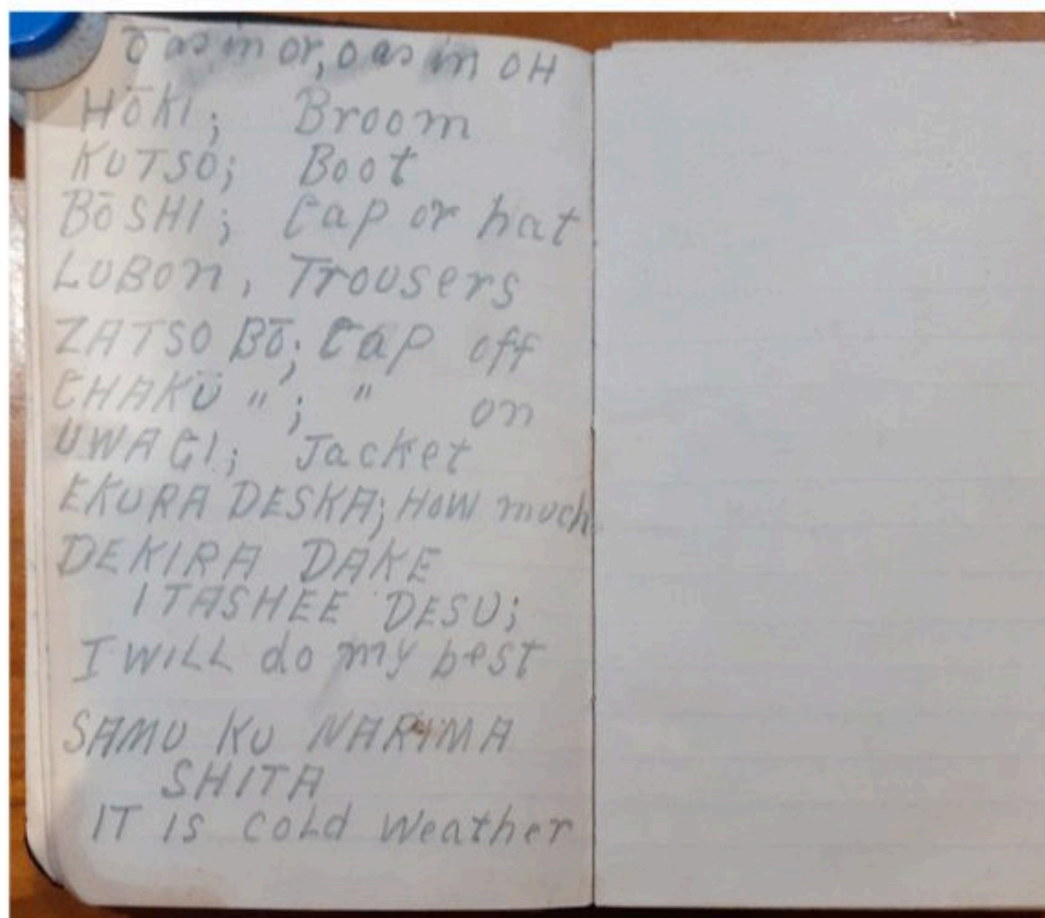 ō as in or, o as in OH
HŌKI; Broom
KUTSO; Boot
BōSHI; Cap or hat
LUBON, Trousers
ZATSO BŌ; Cap off
CHAKŪ "; " on
UWAGI; Jacket
EKURA DESKA; HOW much
DEKIRA DAKE
ITASHEE DESU;
I WILL do my best
SAMU KU NARIMA
SHITA
IT IS COLd Weather